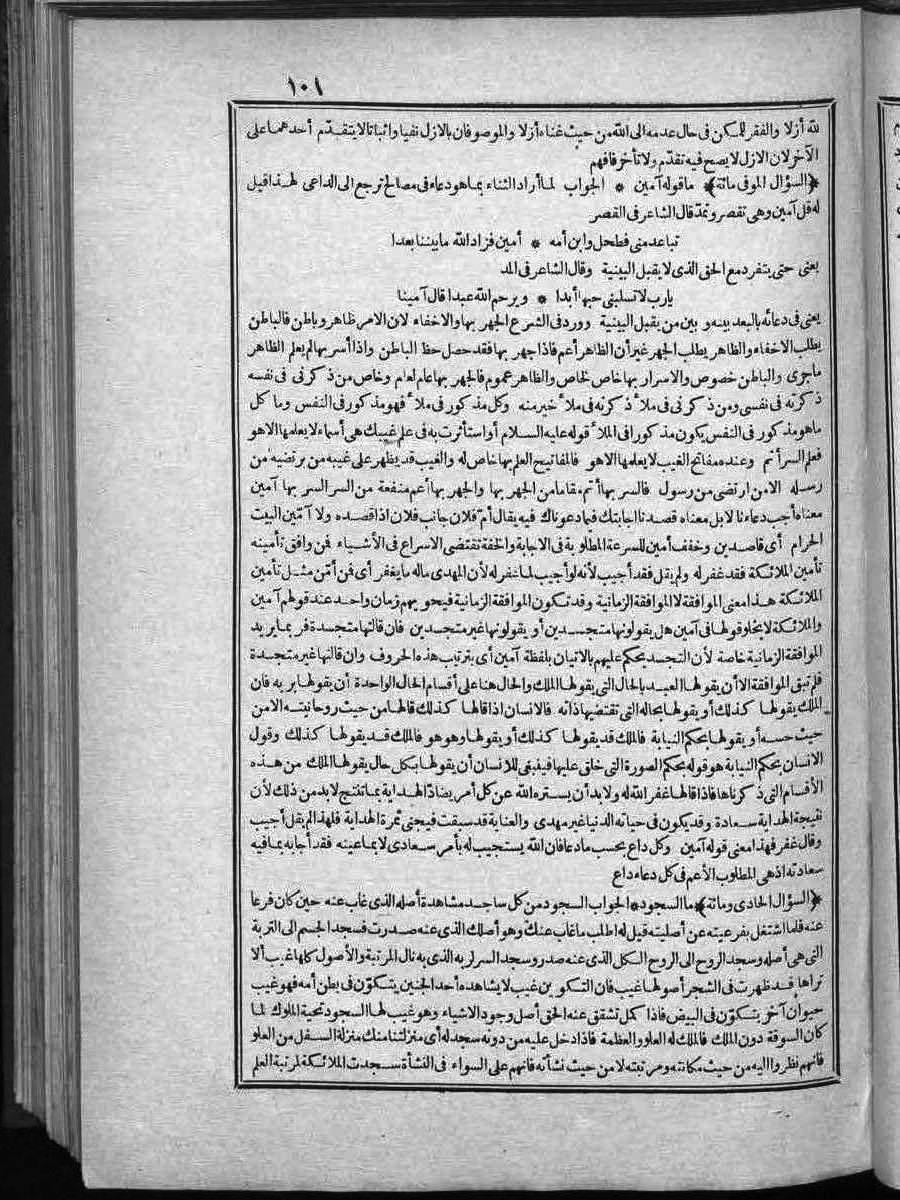 ١٠١
لله أزلا والفقر للممكن في حال عدمه الى الله من حيث غناه أزلا والموصوفان بالازل نفيا واثباتا لا يتقدّم أحدهما على
الآخر لان الازل لا يصح فيه تقدّم ولا تأخر فافهم
﴿السؤال الموفى مائة﴾ ما قوله آمين * الجواب لما أراد الثناء بما هو دعاء في مصالح ترجع الى الداعى لهذا قيل
له قل آمين وهي تقصر وتمدّ قال الشاعر في القصر
تباعد منى فطحل وابن أمه * أمين فزاد الله ما بيننا بعدا
يعنى حتى يتفرد مع الحق الذى لا يقبل البينية وقال الشاعر في المد
يارب لا تسلبنى حبها أبدا * ويرحم الله عبدا قال آمينا
يعنى في دعائه بالبعد بينه و بين من يقبل البينية وورد في الشرع الجهر بها والاخفاء لان الامر ظاهر وباطن فالباطن
يطلب الاخفاء والظاهر يطلب الجهر غير أن الظاهر أعم فاذا جهر بها فقد حصل حظ الباطن واذا أسر بها لم يعلم الظاهر
ماجرى والباطن خصوص والاسرار بها خاص لخاص والظاهر عموم فالجهر بها عام لعام وخاص من ذكرنى في نفسه
ذكرته في نفسى ومن ذكرنى في ملأ ذكرته في ملأ خير منه وكل مذكور في ملأ فهو مذكور في النفس وما كل
ماهو مذكور في النفس يكون مذكورا في الملأ قوله عليه السلام أو استأثرت به في علم غيبك هي أسماء لا يعلمها الاهو
فعلم السر أتم وعنده مفاتح الغيب لا يعلمها الاهو فالمفاتيح العلم بها خاص له والغيب قد يظهر على غيبه من يرتضيه من
رسله الامن ارتضى من رسول فالسر بها أتم مقاما من الجهر بها والجهر بها أعم منفعة من السر السر بها آمين
معناه أجب دعاءنا لا بل معناه قصدنا اجابتك فيما دعوناك فيه يقال أمّ فلان جانب فلان اذا قصده ولا آمّين البيت
الحرام أى قاصدين وخفف أمين للسرعة المطلوبة في الاجابة والخفة تقتضى الاسراع في الأشياء فمن وافق تأمينه
تأمين الملائكة فقد غفر له ولم يقل فقد أجيب لأنه لو أجيب لما غفر له لأن المهدى ماله ما يغفر أى فمن أمّن مثل تأمين
الملائكة هذا معنى الموافقة لا الموافقة الزمانية وقد تكون الموافقة الزمانية فيحويهم زمان واحد عند قولهم آمين
والملائكة لا يخلو قولها في آمين هل يقولونها متجسدين أو يقولونها غير متجسدين فان قالتها متجسدة فربما يريد
الموافقة الزمانية خاصة لأن التجسد يحكم عليهم بالاتيان بلفظة آمين أى بترتيب هذه الحروف وان قالتها غير متجسدة
فلم تبق الموافقة الا أن يقولها العبد بالحال التي يقولها الملك والحال هنا على أقسام الحال الواحدة أن يقولها بربه فان
الملك يقولها كذلك أو يقولها بحاله التي تقتضيها ذاته فالانسان اذا قالها كذلك قالها من حيث روحانيته الامن
حيث حسه أو يقولها بحكم النيابة فالملك قد يقولها كذلك أو يقولها وهو هو فالملك قد يقولها كذلك وقول
الانسان بحكم النيابة هو قوله بحكم الصورة التى خلق عليها فينبغى للانسان أن يقولها بكل حال يقولها الملك من هذه
الأقسام التى ذكرناها فاذا قالها غفر الله له ولا بد أن يستره الله عن كل أمر يضادّ الهداية بما تنتج لا بد من ذلك لأن
نتيجة الهداية سعادة وقد يكون في حياته الدنيا غير مهدى والعناية قد سبقت فيجنى ثمرة الهداية فلهذا لم يقل أجيب
وقال غفر فهذا معنى قوله آمين وكل داع بحسب ما دعا فان الله يستجيب له بأمر سعادى لا بما عينه فقد أجابه بما فيه
سعادته اذ هي المطلوب الأعم في كل دعاء داع
﴿السؤال الحادى ومائة﴾ ما السجود * الجواب السجود من كل ساجد مشاهدة أصله الذى غاب عنه حين كان فرعا
عنه فلما اشتغل بفرعيته عن أصليته قيل له اطلب ما غاب عنك وهو أصلك الذى عنه صدرت فسجد الجسم الى التربة
التى هي أصله وسجد الروح الى الروح الكل الذى عنه صدر وسجد السر لربه الذى به نال المرتبة والأصول كلها غيب ألا
تراها قد ظهرت في الشجر أصولها غيب فان التكوين غيب لا يشاهده أحد الجنين يتكوّن في بطن أمه فهو غيب
حيوان آخر يتكوّن في البيض فاذا كمل تشقق عنه الحق أصل وجود الاشياء وهو غيب لها السجود تحية الملوك لما
كان السوقة دون الملك فالملك له العلو والعظمة فاذا دخل عليه من دونه سجد له أى منزلتنا منك منزلة السفل من العلو
فانهم نظروا اليه من حيث مكانته ومرتبته لا من حيث نشأته فانهم على السواء في النشأة سجدت الملائكة لمرتبة العلم